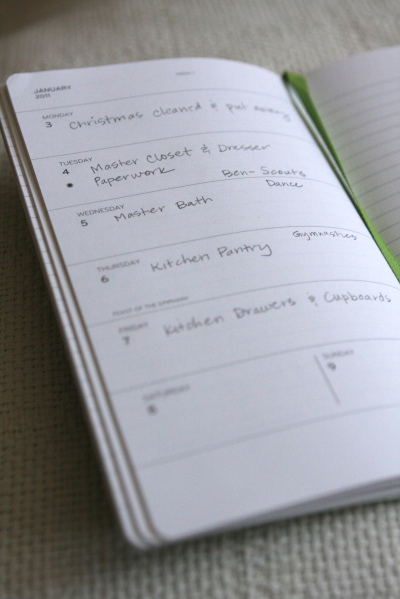 JANUARY
2011
MONDAY
3 Christmas cleaned & put away
TUESDAY
4 Master Closet & Dresser
Paperwork Ben-Scouts
Dance
WEDNESDAY
5 Master Bath
Gymnastics
THURSDAY
6 Kitchen Pantry
FEAST OF THE EPIPHANY
FRIDAY
7 Kitchen Drawers & Cupboards
SATURDAY
8
SUNDAY
9